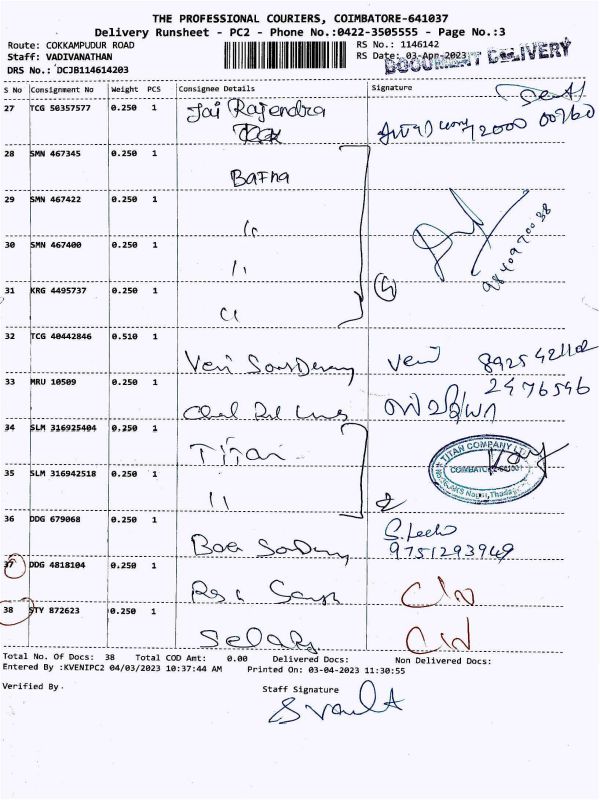 THE PROFESSIONAL COURIERS, COIMBATORE-641037
Delivery Runsheet - PC2 - Phone No.:0422-3505555 - Page No.:3
Route: COKKAMPUDUR ROAD RS No.: 1146142
Staff: VADIVANATHAN RS Date: 03-Apr-2023
DOCUMENT DELIVERY
DRS No.: DCJB114614203
S No Consignment No Weight PCS Consignee Details Signature
27 TCG 50357577 0.250 1 Jai Rajendra
72000 00760
28 SMN 467345 0.250 1
Bafna
29 SMN 467422 0.250 1
"
9840970038
30 SMN 467400 0.250 1
"
31 KRG 4495737 0.250 1
"
4
32 TCG 40442846 0.510 1
Veni 8925421102
33 MRU 10509 0.250 1 2476546
34 SLM 316925404 0.250 1
Titan
TITAN COMPANY LTD
COIMBATORE-641001
35 SLM 316942518 0.250 1
"
2
36 DDG 679068 0.250 1
9751293949
37 DDG 4818104 0.250 1
38 STY 872623 0.250 1
Total No. Of Docs: 38 Total COD Amt: 0.00 Delivered Docs: Non Delivered Docs:
Entered By :KVENIPC2 04/03/2023 10:37:44 AM Printed On: 03-04-2023 11:30:55
Verified By Staff Signature